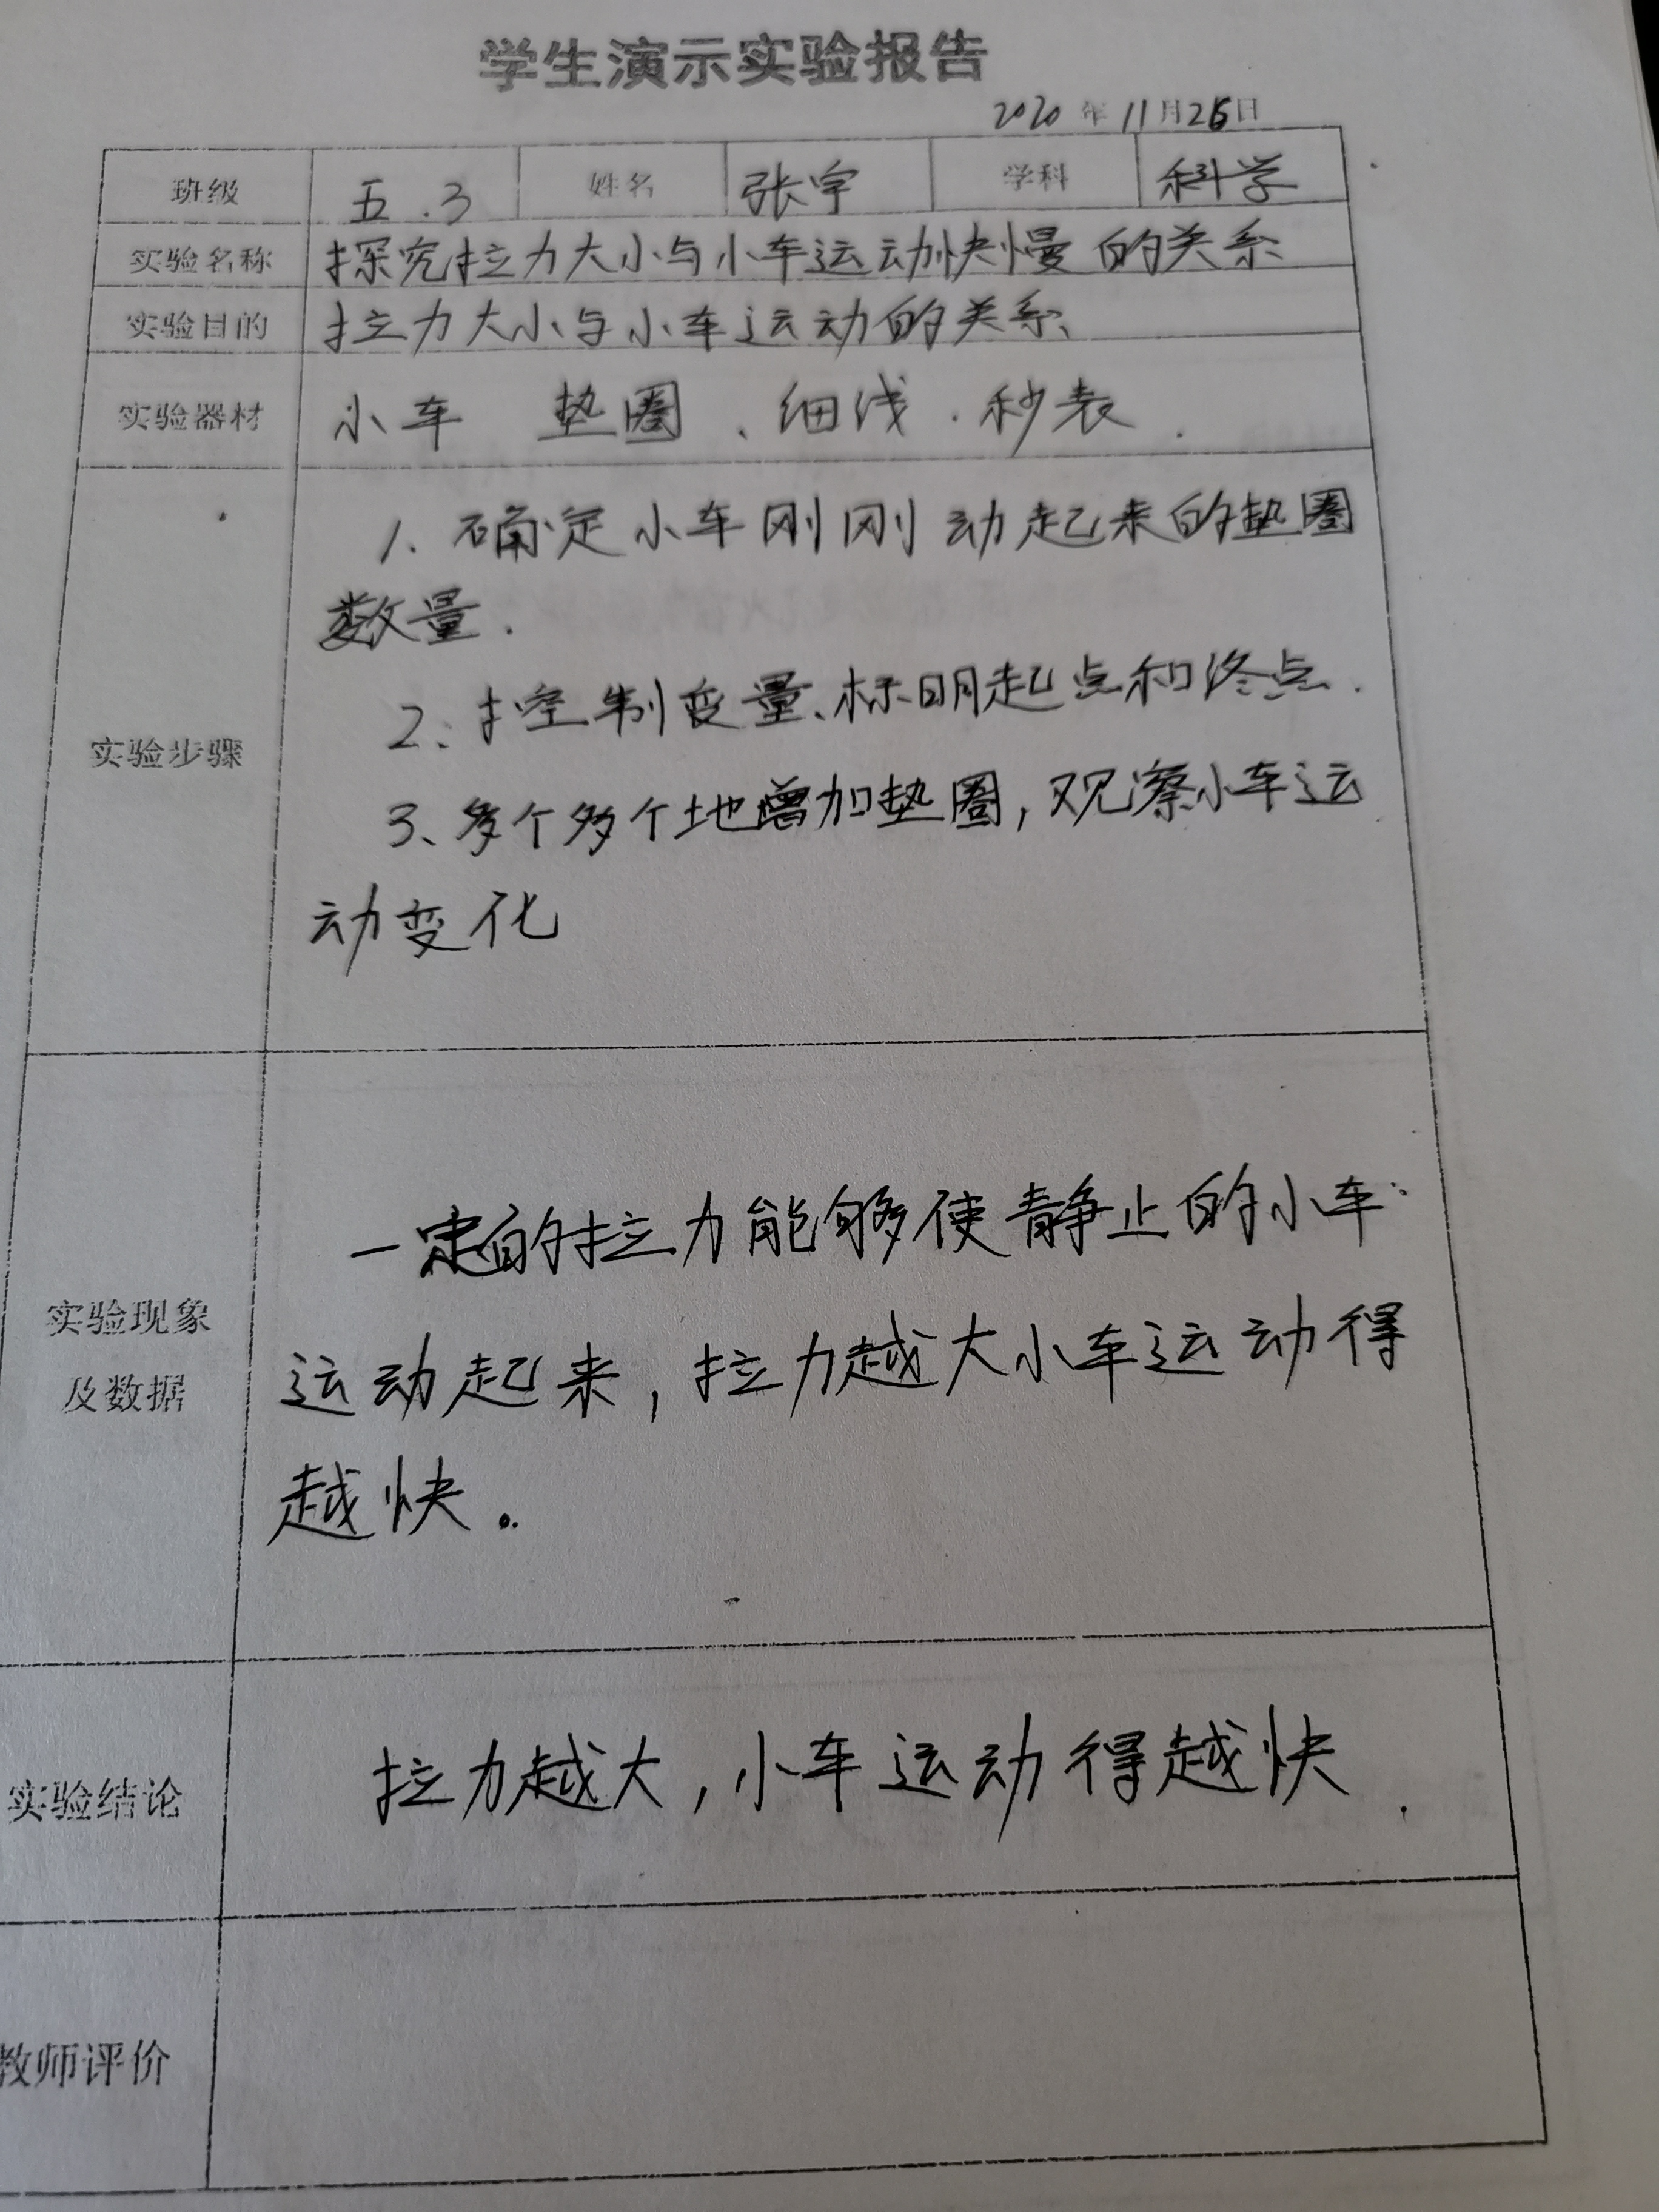 学生演示实验报告
2020年11月26日
班级 五.3 姓名 张宇 学科 科学
实验名称 探究拉力大小与小车运动快慢的关系
实验目的 拉力大小与小车运动的关系、
实验器材 小车 垫圈、细线.秒表.
实验步骤
1.确定小车刚刚动起来的垫圈
数量.
2、控制变量、标明起点和终点.
3、多个多个地增加垫圈,观察小车运
动变化
实验现象
及数据
一定的拉力能够使静止的小车
运动起来,拉力越大小车运动得
越快。
实验结论 拉力越大,小车运动得越快.
教师评价